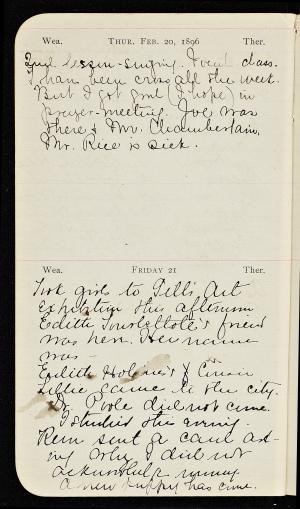 Wea. THUR. FEB. 20, 1896 Ther.
2nd lesson - singing. Vocal class.
I have been cross all the week.
But I got good (I hope) in
prayer-meeting. Joe was
there & Mr. Chamberlain.
Mr. Rice is sick.
Wea. FRIDAY 21 Ther.
Took girls to Gill's Art
Exhibition this afternoon
Edith 's friend
was here. Her name
was -
Edith Holmes & Cousin
Lillie came to the city.
Dr. Poole did not come.
I studied this evening.
Rem sent a card ask-
ing why I did not
acknowledge money
A new puppy has come.